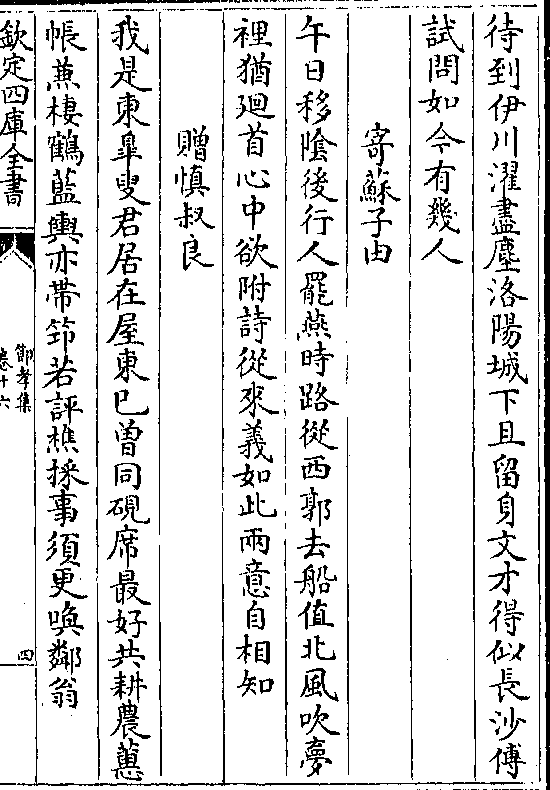 待到伊川濯盡塵洛陽城下且留身文才得似長沙傅
試問如今有幾人
寄蘇子由
午日移陰後行人罷燕時路從西郭去船值北風吹夢
裡猶廻首心中欲附詩從來義如此兩意自相知
贈慎叔良
我是東臯叟君居在屋東已曾同硯席最好共耕農蕙
帳蕉棲鶴藍輿亦帶筇若評樵採事須更喚鄰翁
欽定四庫全書
節孝集
卷十六
四